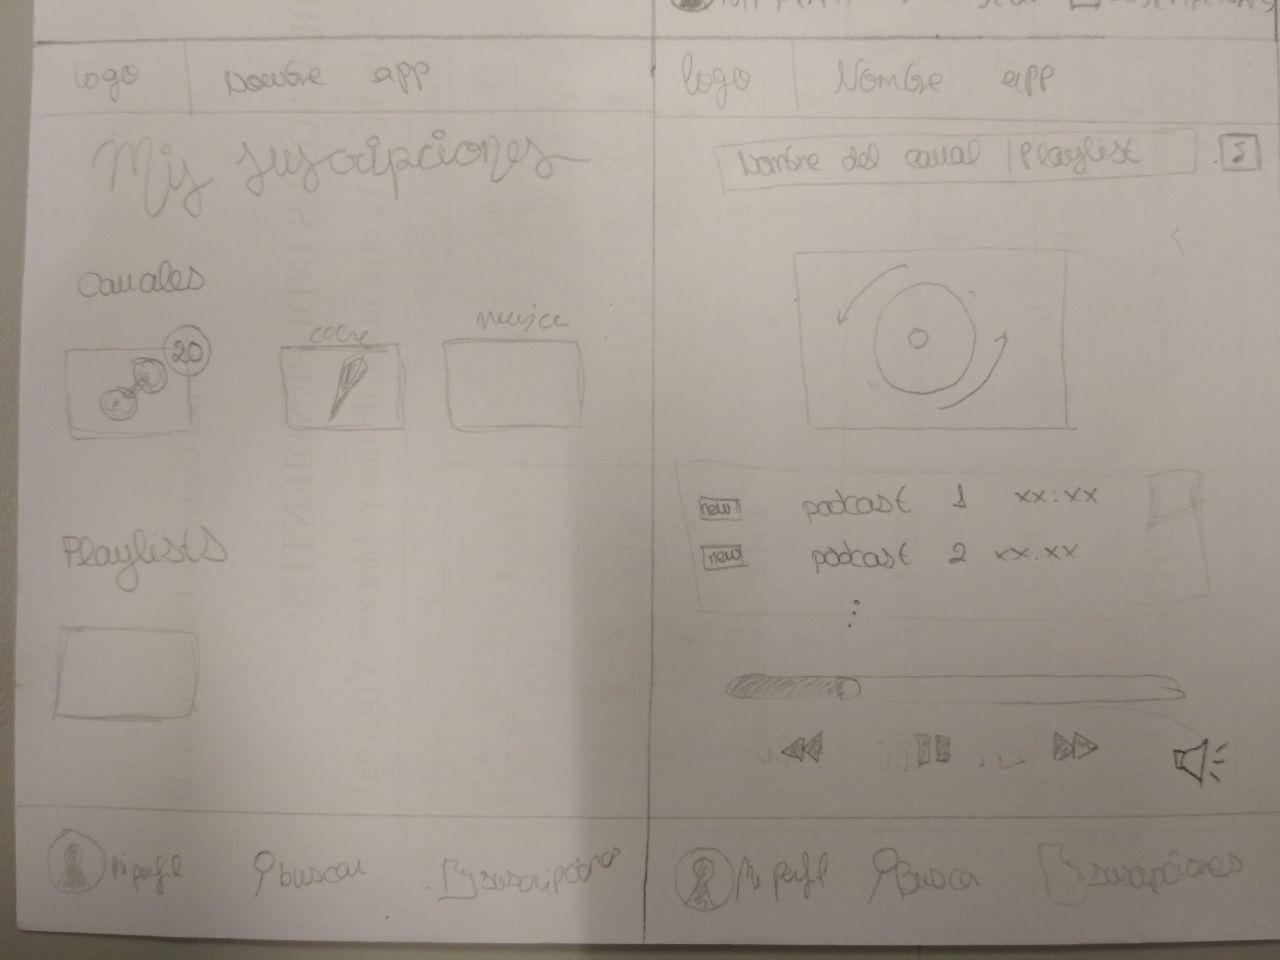 logo Nombre app
Mis suscripciones
Canales
20
cocina
musica
Playlists
Mi perfil buscar suscripciones
logo Nombre app
Nombre del canal | Playlist S
new podcast 1 xx:xx
new podcast 2 xx:xx
Mi perfil Busca suscripciones